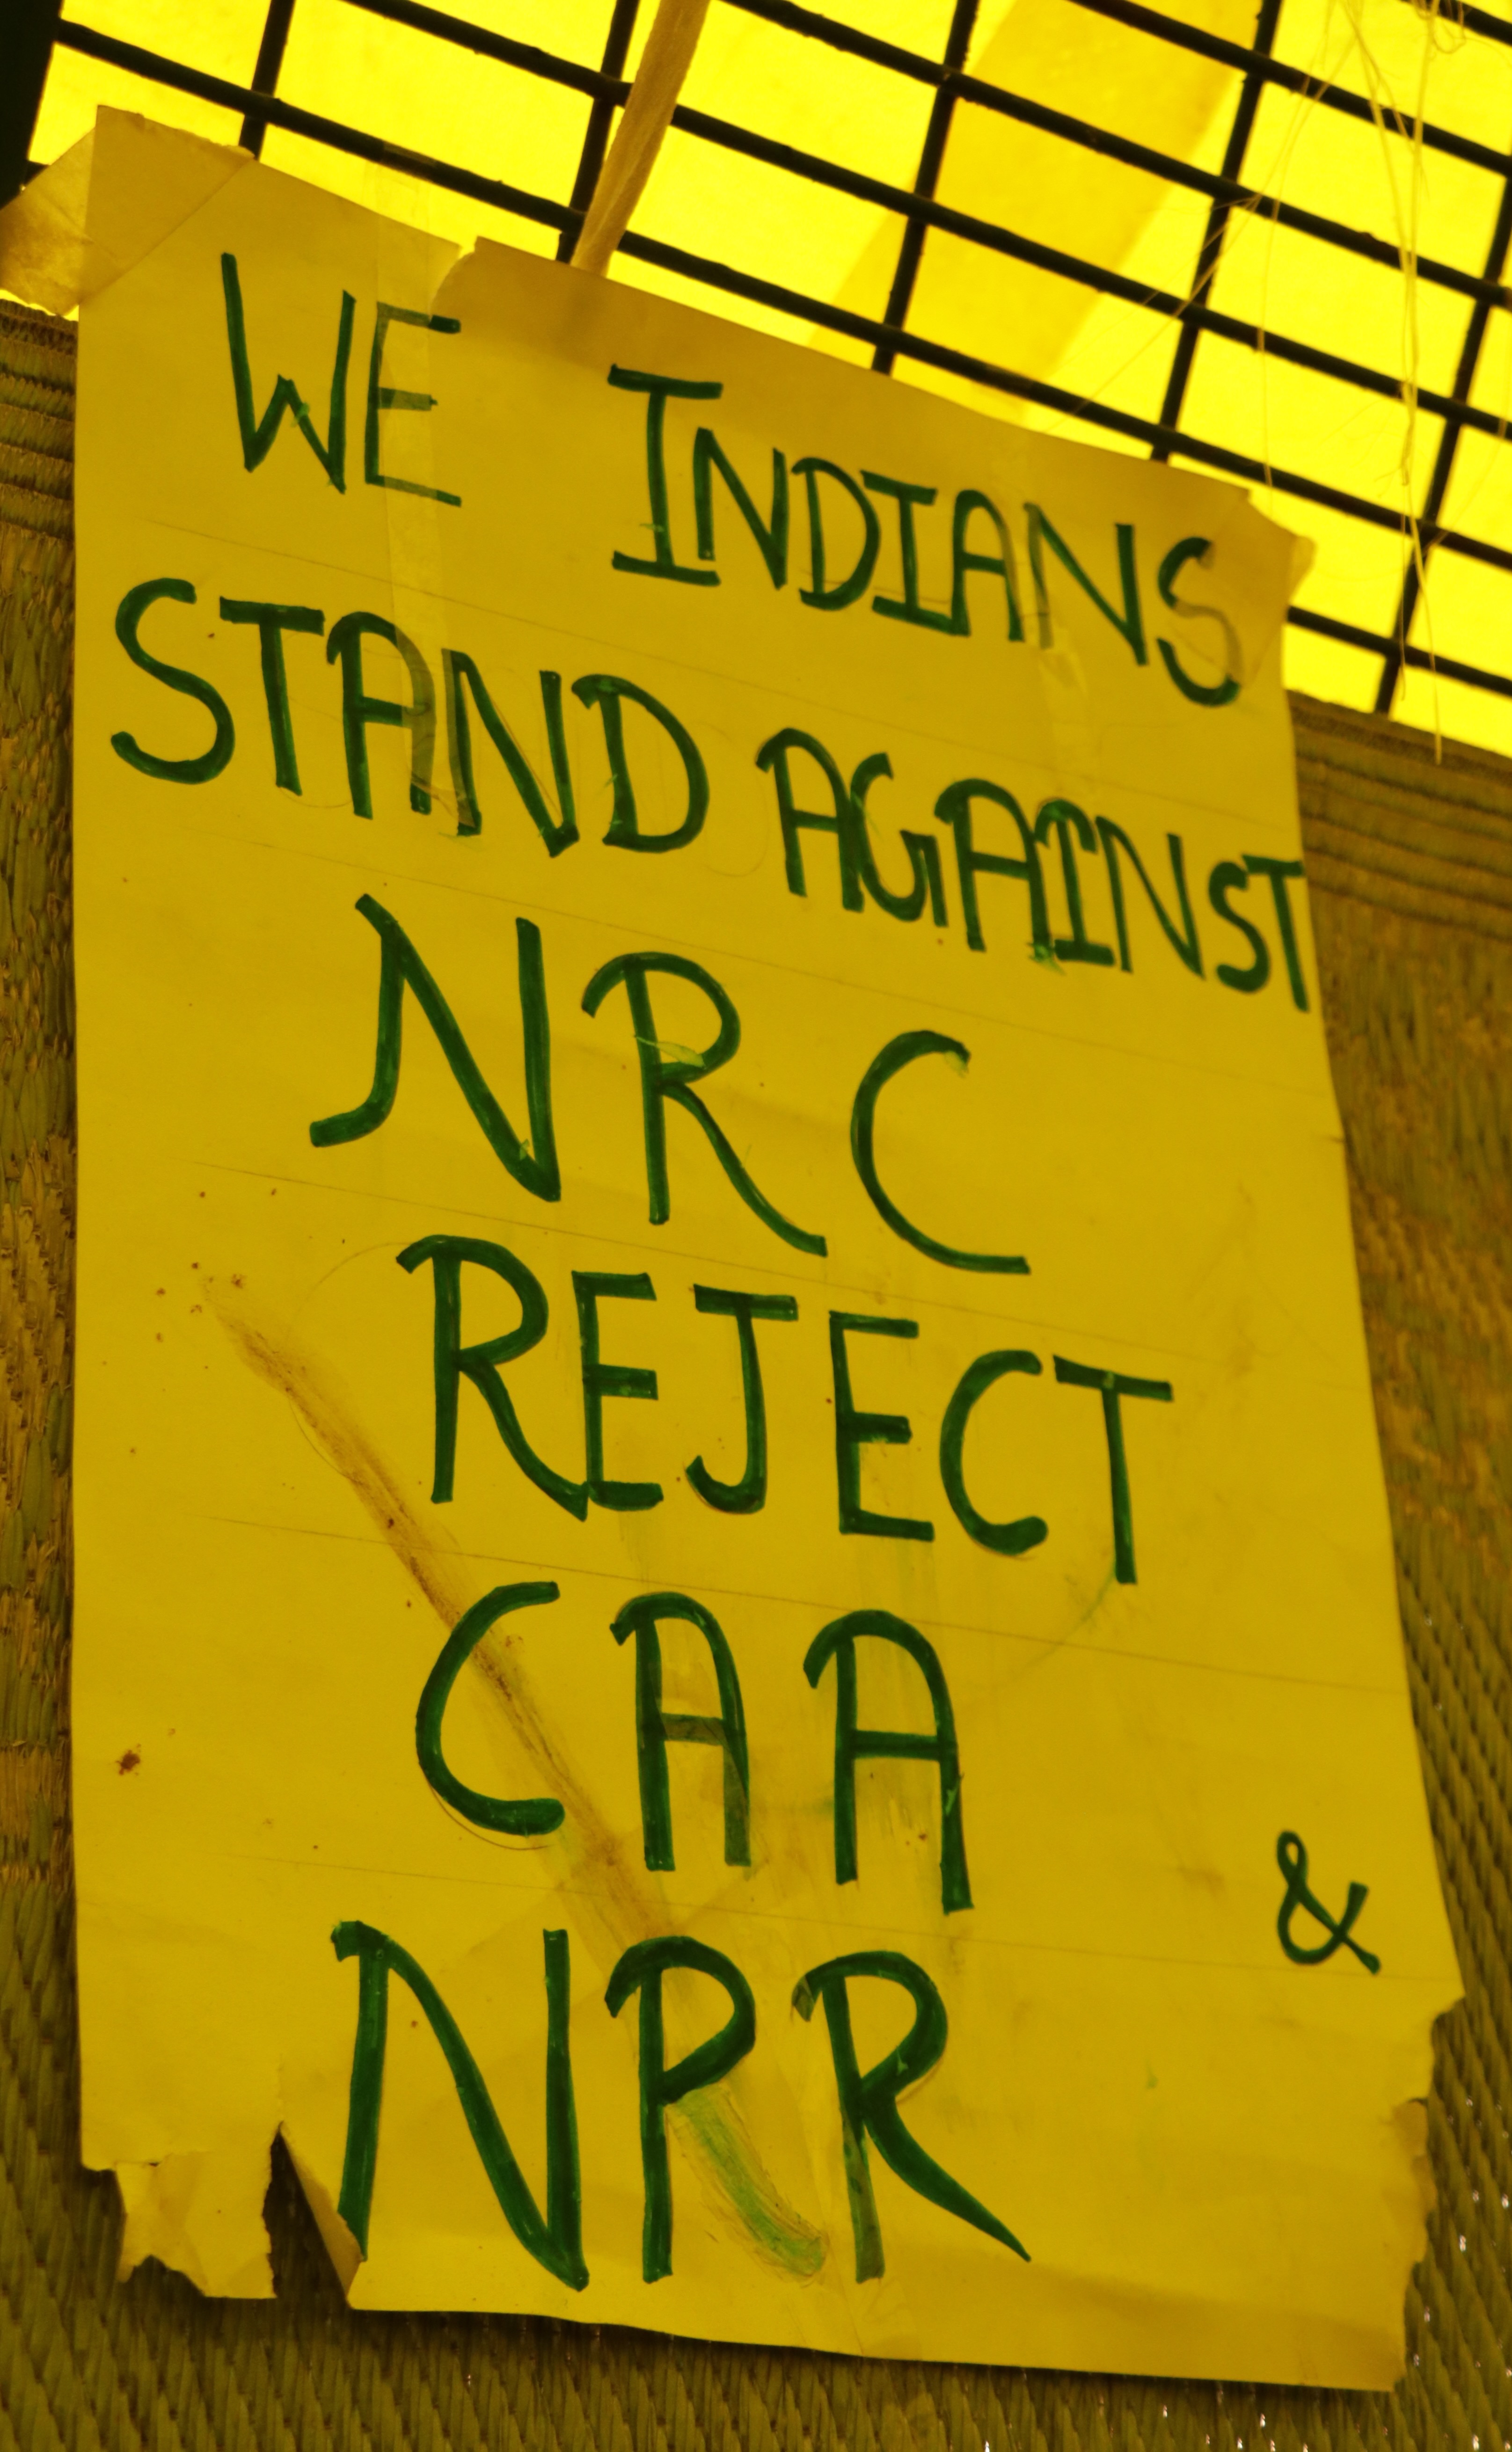 WE INDIANS
STAND AGAINST
NRC
REJECT
CAA &
NPR